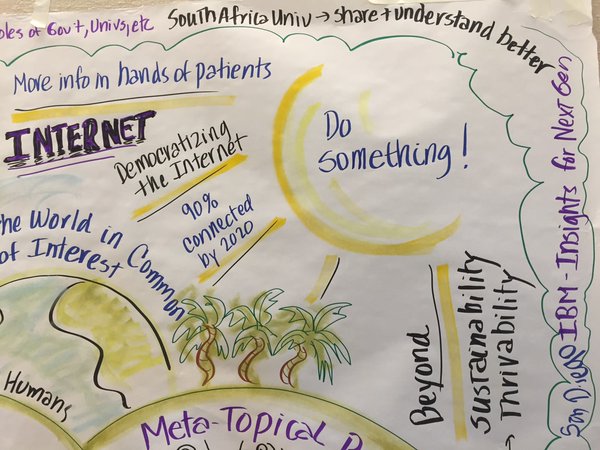 of Gov't, Univs, etc
South Africa Univ → share + understand better
More info in hands of patients
INTERNET
Democratizing
the Internet
90%
connected
by 2020
Do
something!
the World in Common
of Interest
Humans
Meta-Topical
Beyond
Sustainability
Thrivability
San Diego IBM - Insights for Next Gen